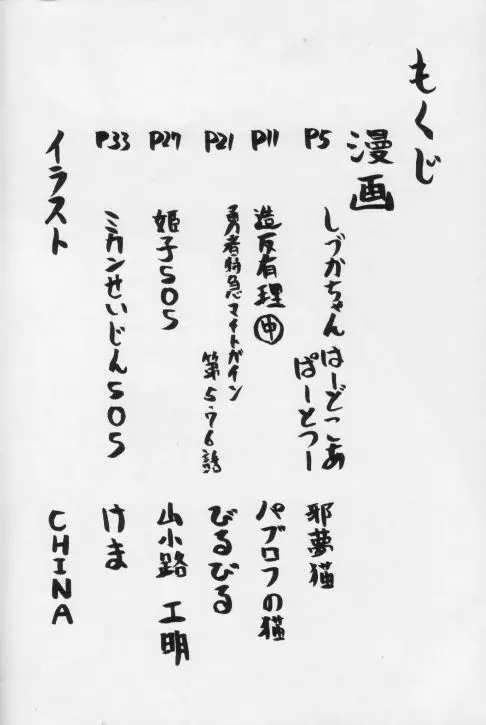 もくじ
漫画
P5 しづかちゃん はーどこあ ぱーとつー 邪夢猫
P11 造反有理㊥ パブロフの猫
P21 勇者特急マイトガイン 第5.76話 びるびる
P27 姫子SOS 山小路 工明
P33 ミカンせいじんSOS けま
イラスト CHINA